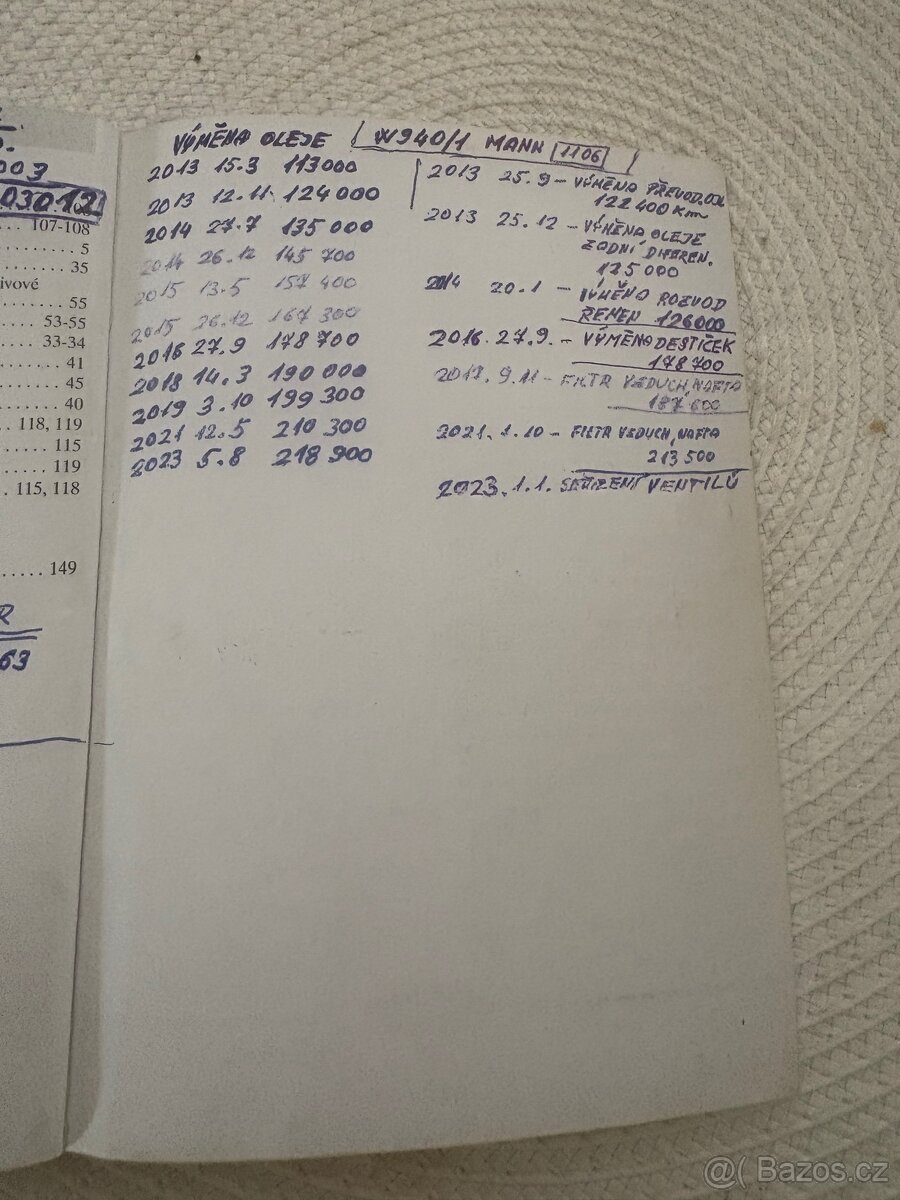 003
03012
107-108
5
35
ivové
55
53-55
33-34
41
45
40
118, 119
115
119
115, 118
149
R
63
VÝMĚNA OLEJE W940/1 MANN 1106
2013 15.3 113000
2013 12.11 124000
2014 27.7 135000
2014 26.12 145 700
2015 13.5 157 400
2015 26.12 167 300
2016 27.9 178 700
2018 14.3 190 000
2019 3.10 199 300
2021 12.5 210 300
2023 5.8 218 900
2013 25.9 - VÝMĚNA PŘEVOD.OL
122 400 Km
2013 25.12 - VÝMĚNA OLEJE
ZADNÍ DIFEREN.
125 000
2014 20.1 - VÝMĚNA ROZVOD
ŘEMEN 126000
2016. 27.9. - VÝMĚNA DESTIČEK
178 700
2017. 9.11 - FILTR VZDUCH, NAFTA
187 600
2021. 1.10 - FILTR VZDUCH, NAFTA
213 500
2023. 1.1. SEŘIZENÍ VENTILŮ
@( Bazos.cz